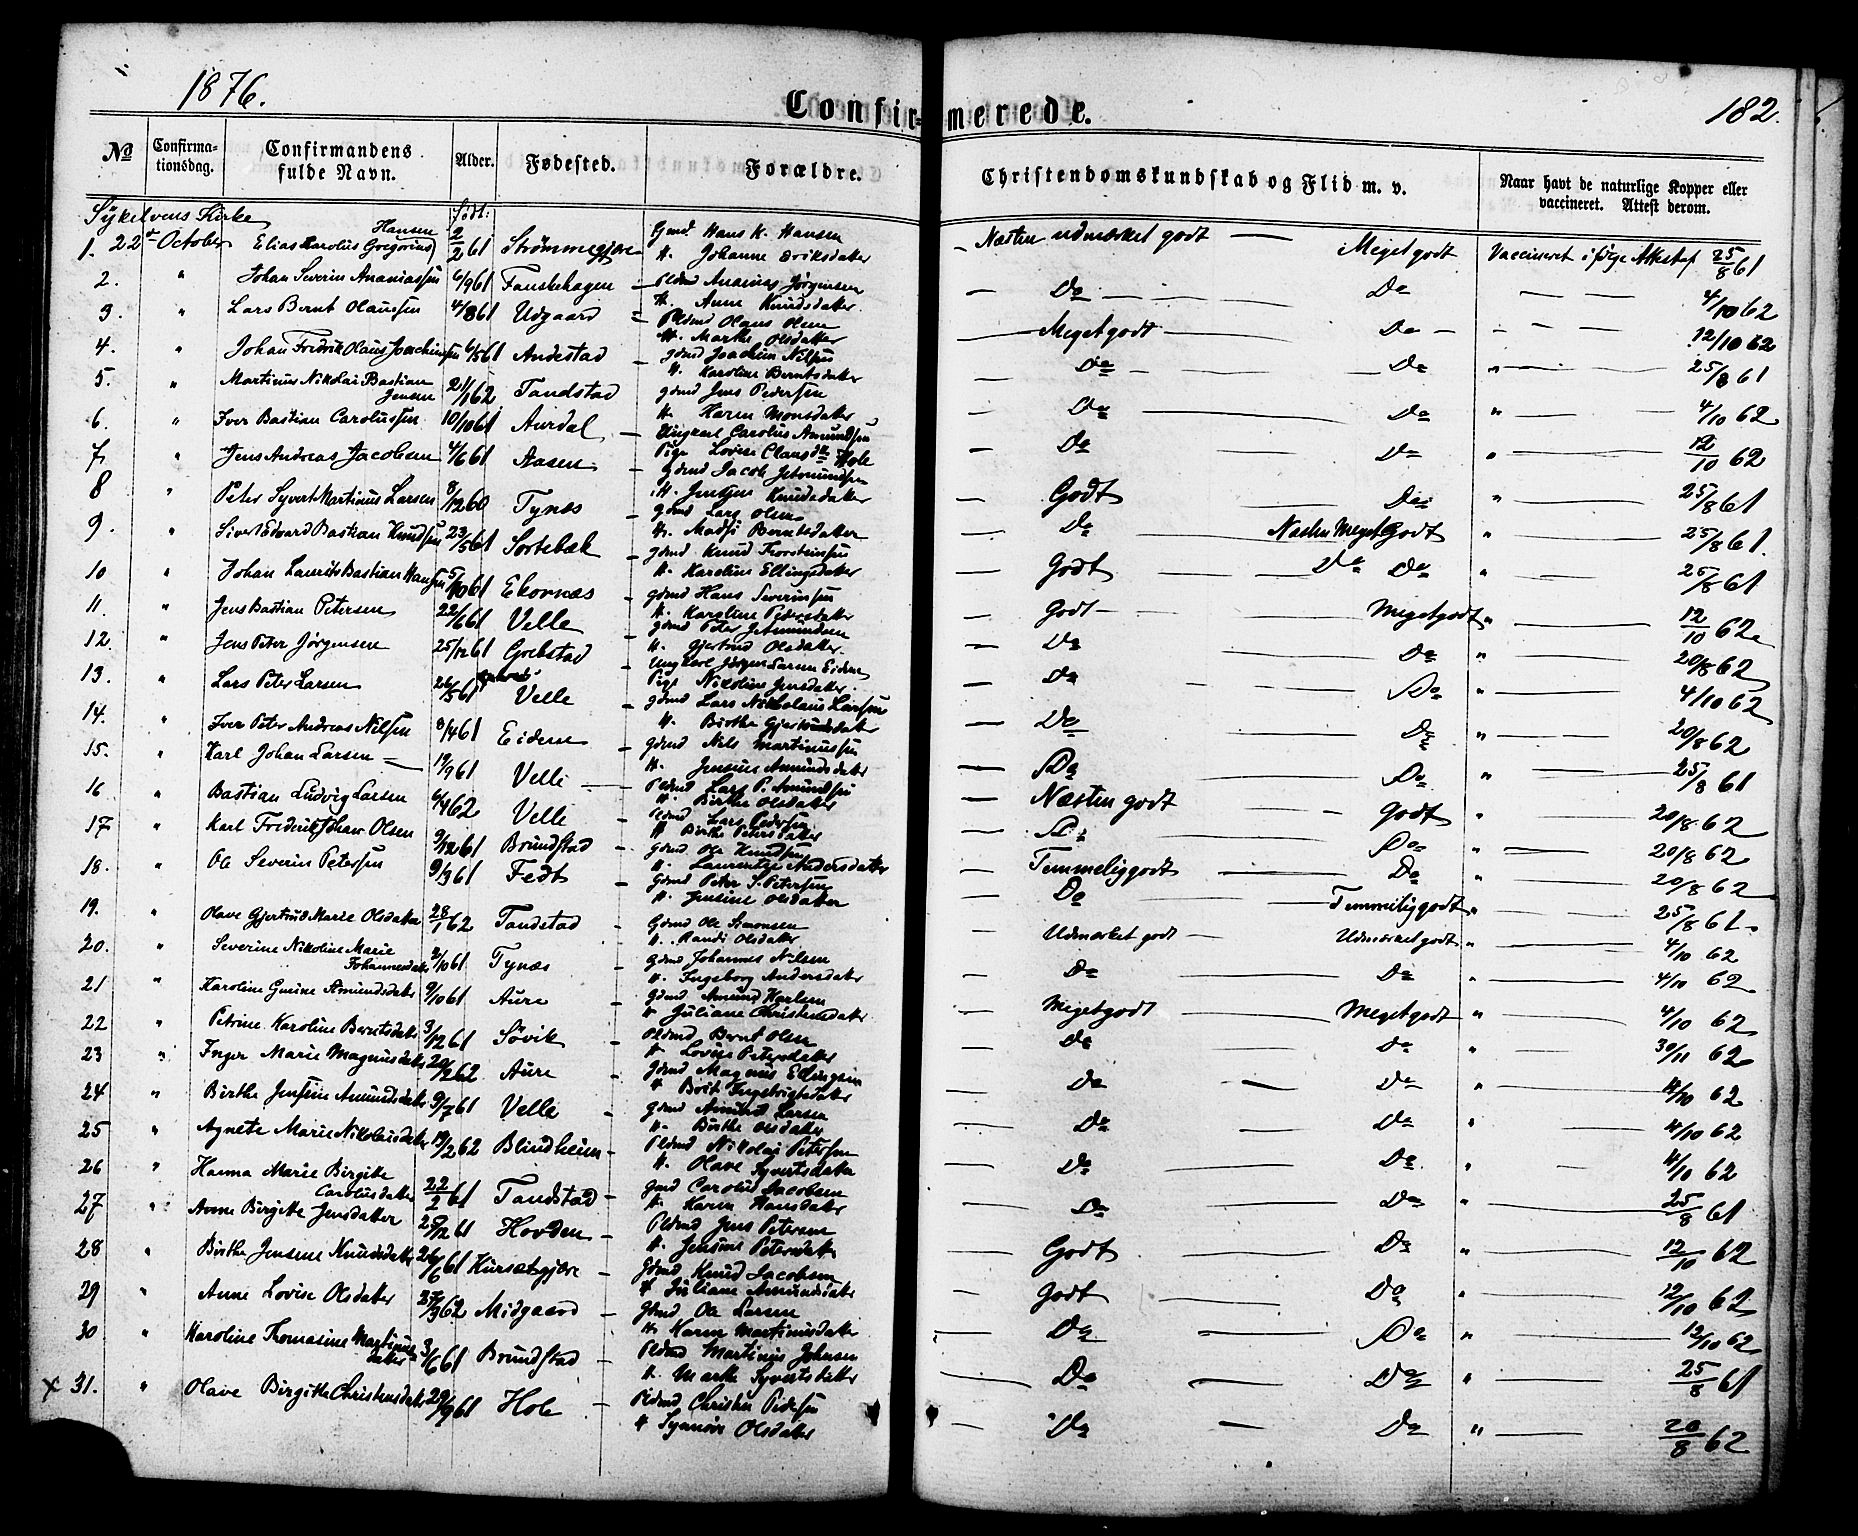 1876.
Confirmerede.
182.
No
Confirmationsdag.
Confirmandens fulde Navn.
Alder.
Fødested.
Forældre.
Christendomskundskab og Flid m. v.
Naar havt de naturlige Kopper eller vaccineret. Attest derom.
Sykelvens Kirke
Født:
1. 22 October Elias Karolus Gregorius Hansen 2/2 61 Strømmegjære Gmd Hans K. Hansen H. Johanne Eriksdatter – Næsten udmærket godt – Meget godt Vaccineret ifølge Attest af 25/8 61
2. " Johan Severin Ananiassen 6/9 61 Fauskehagen – Pldmd Ananias Jørgensen H. Anne Knudsdatter – Do – Do – 4/10 62
3. " Lars Bernt Olaussen 4/8 61 Udgaard – Pldmd Olaus Olsen H. Marthe Olsdatter – Meget godt – Do – 12/10 62
4. " Johan Fredrik Olaus Joachimsen 6/5 61 Andestad – Gdmd Joachim Nilsen H. Karoline Berntsdatter – Do – Do " 25/8 61
5. " Martinus Nikolai Bastian Jensen 21/1 62 Tandstad Gdmd Jens Pedersen H. Karen Monsdatter – Do – Do " 4/10 62
6. " Iver Bastian Carolussen 10/10 61 Aurdal – Ungkarl Carolus Amundsen Pige Lovise Clausdr Hole – Do – Do " 12/10 62
7. " Jens Andreas Jacobsen 4/6 61 Aasen – Gdmd Jacob Jetmundsen H. Jentine Knudsdatter – Godt – Do " 25/8 61
8 " Peter Syvert Martinus Larsen 8/12 60 Tynæs Gdmd Lars Olsen H. Madsi Berntsdatter – Do Næsten Meget Godt " 25/8 61.
9. " Sivert Edvard Bastian Knudsen 23/5 61 Sortebæk – Gdmd Knud Thorsteinsen H. Karoline Ellingsdatter – Godt – Do Do " 25/8 61
10 " Johan Laurits Bastian Hansen 5/10 61 Ekornæs – Gdmd Hans Severinsen H. Karoline Pedersdatter – Godt – Meget godt " 12/10 62
11. " Jens Bastian Petersen 22/6 61 Velle – Gdmd Peter Jetmundsen H. Gjertrud Olsdatter. – Do – Do " 20/8 62
12. " Jens Peter Jørgensen 25/12 61 Grebstad – Ungkarl Jørgen Larsen Eidem Pige Nikoline Jensdatter. – Do – Do " 4/10 62
13. " Lars Peter Larsen 26/5 61 Velle – Gdmd Lars Nikolaus Larsen H. Birthe Gjertrudsdatter – Do – Do " 20/8 62
14. " Iver Peter Andreas Nilsen 8/4 61 Eidem – Gdmd Nils Martinussen H. Jensine Amundsdatter – Do – Do " 25/8 61
15. " Karl Johan Larsen – 19/9 61 Velle – Pldmd Lars P. Amundsen H. Birthe Olsdatter – Næsten godt – Godt " 20/8 62
16 " Bastian Ludvig Larsen 6/4 62 Velle – Pldmd Lars Pedersen H. Birthe Petersdatter – Do – Do " 20/8 62
17 " Karl Frederik Johan Olsen 9/12 61 Brundstad – Gdmd Ole Knudsen H. Laurentze Andersdatter – Temmelig godt – Do " 20/8 62
18. " Ole Severin Petersen 9/3 61 Fedt – Gdmd Peter S. Petersen H. Jensine Olsdatter – Do – Temmelig godt " 25/8 61
19. " Olave Gjertrud Marie Olsdatter 28/1 62 Tandstad – Gdmd Ole Simonsen H. Randi Olsdatter – Udmærket godt – Udmærket godt " 4/10 62
20. " Severine Nikoline Marie Johannesdatter 2/10 61 Tynæs – Gdmd Johannes Nilsen H. Ingeborg Andersdatter – Do – Do " 4/10 62
21 " Karoline Gurine Amundsdatter 9/10 61 Aure – Gdmd Amund Karlsen H Juliane Christensdatter – Meget godt – Meget godt " 4/10 62
22 " Petrine Karoline Berntsdatter 3/12 61 Søvik – Pldmd Bernt Olsen H Lovise Petersdatter – Do – Do " 30/11 62
23 " Inger Marie Magnusdatter 20/2 62 Aure – Gdmd Magnus Ellingsen H Brit Ingebrigtsdatter – Do – Do " 4/10 62
24 " Birthe Jensine Amundsdatter 9/7 61 Velle – Gdmd Amund Larsen H. Birthe Olsdatter – Do – Do " 4/10 62
25 " Agnete Marie Nikolaisdatter 19/2 62 Blindheim – Pldmd Nikolai Petersen H. Olave Syvertsdatter – Do – Do " 4/10 62
26 " Hanna Marie Birgitte Carolusdatter 22/2 61 Tandstad – Gmd Carolus Jacobsen H. Karen Hansdatter – Do – Do " 25/8 61
27 " Anne Birgitte Jensdatter 25/12 61 Hovden – Pldmd Jens Petersen H. Jensine Petersdatter – Godt – Do " 12/10 62
28 " Birthe Jensine Knudsdatter 26/6 61 Kursætgjære – Gdmd Knud Jacobsen H Juliane Amundsdatter – Godt – Do " 12/10 62
29 " Anne Lovise Olsdatter 27/3 62 Midgaard – Gdmd Ole Larsen H. Karen Martinusdatter – Do – Do " 12/10 62
30 " Karoline Thomasine Martinusdatter 3/6 61 Brundstad – Pldmd Martinus Johnsen H. Marthe Syvertsdatter – Do – Do " 25/8 61
x 31. " Olave Birgitte Christensdatter 29/9 61 Hole – Pldmd Christen Pedersen H Synnøve Olsdatter – Do – Do " 20/8 62